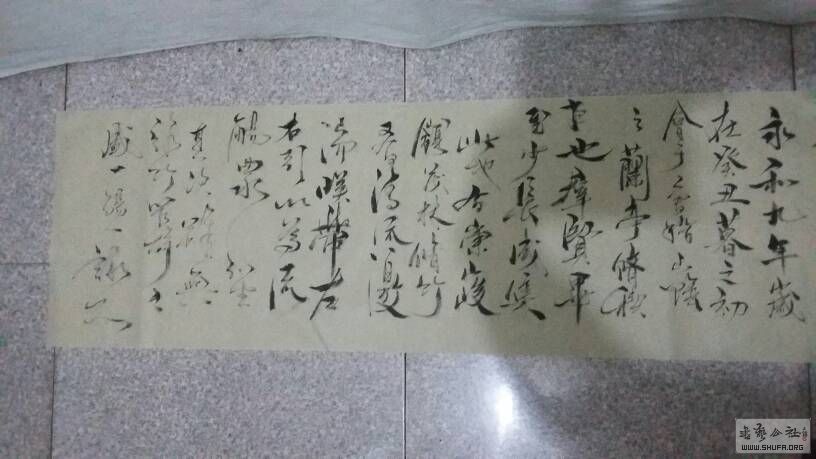 永和九年歲
在癸丑暮之初
會于會稽山陰
之蘭亭脩禊
事也羣賢畢
至少長咸集
此地有崇峻
領茂林脩竹
又有清流激
湍暎帶左
右引以為流
觴曲水列坐
其次雖無
絲竹管弦之
盛一觴一詠亦
书艺公社
WWW.SHUFA.ORG